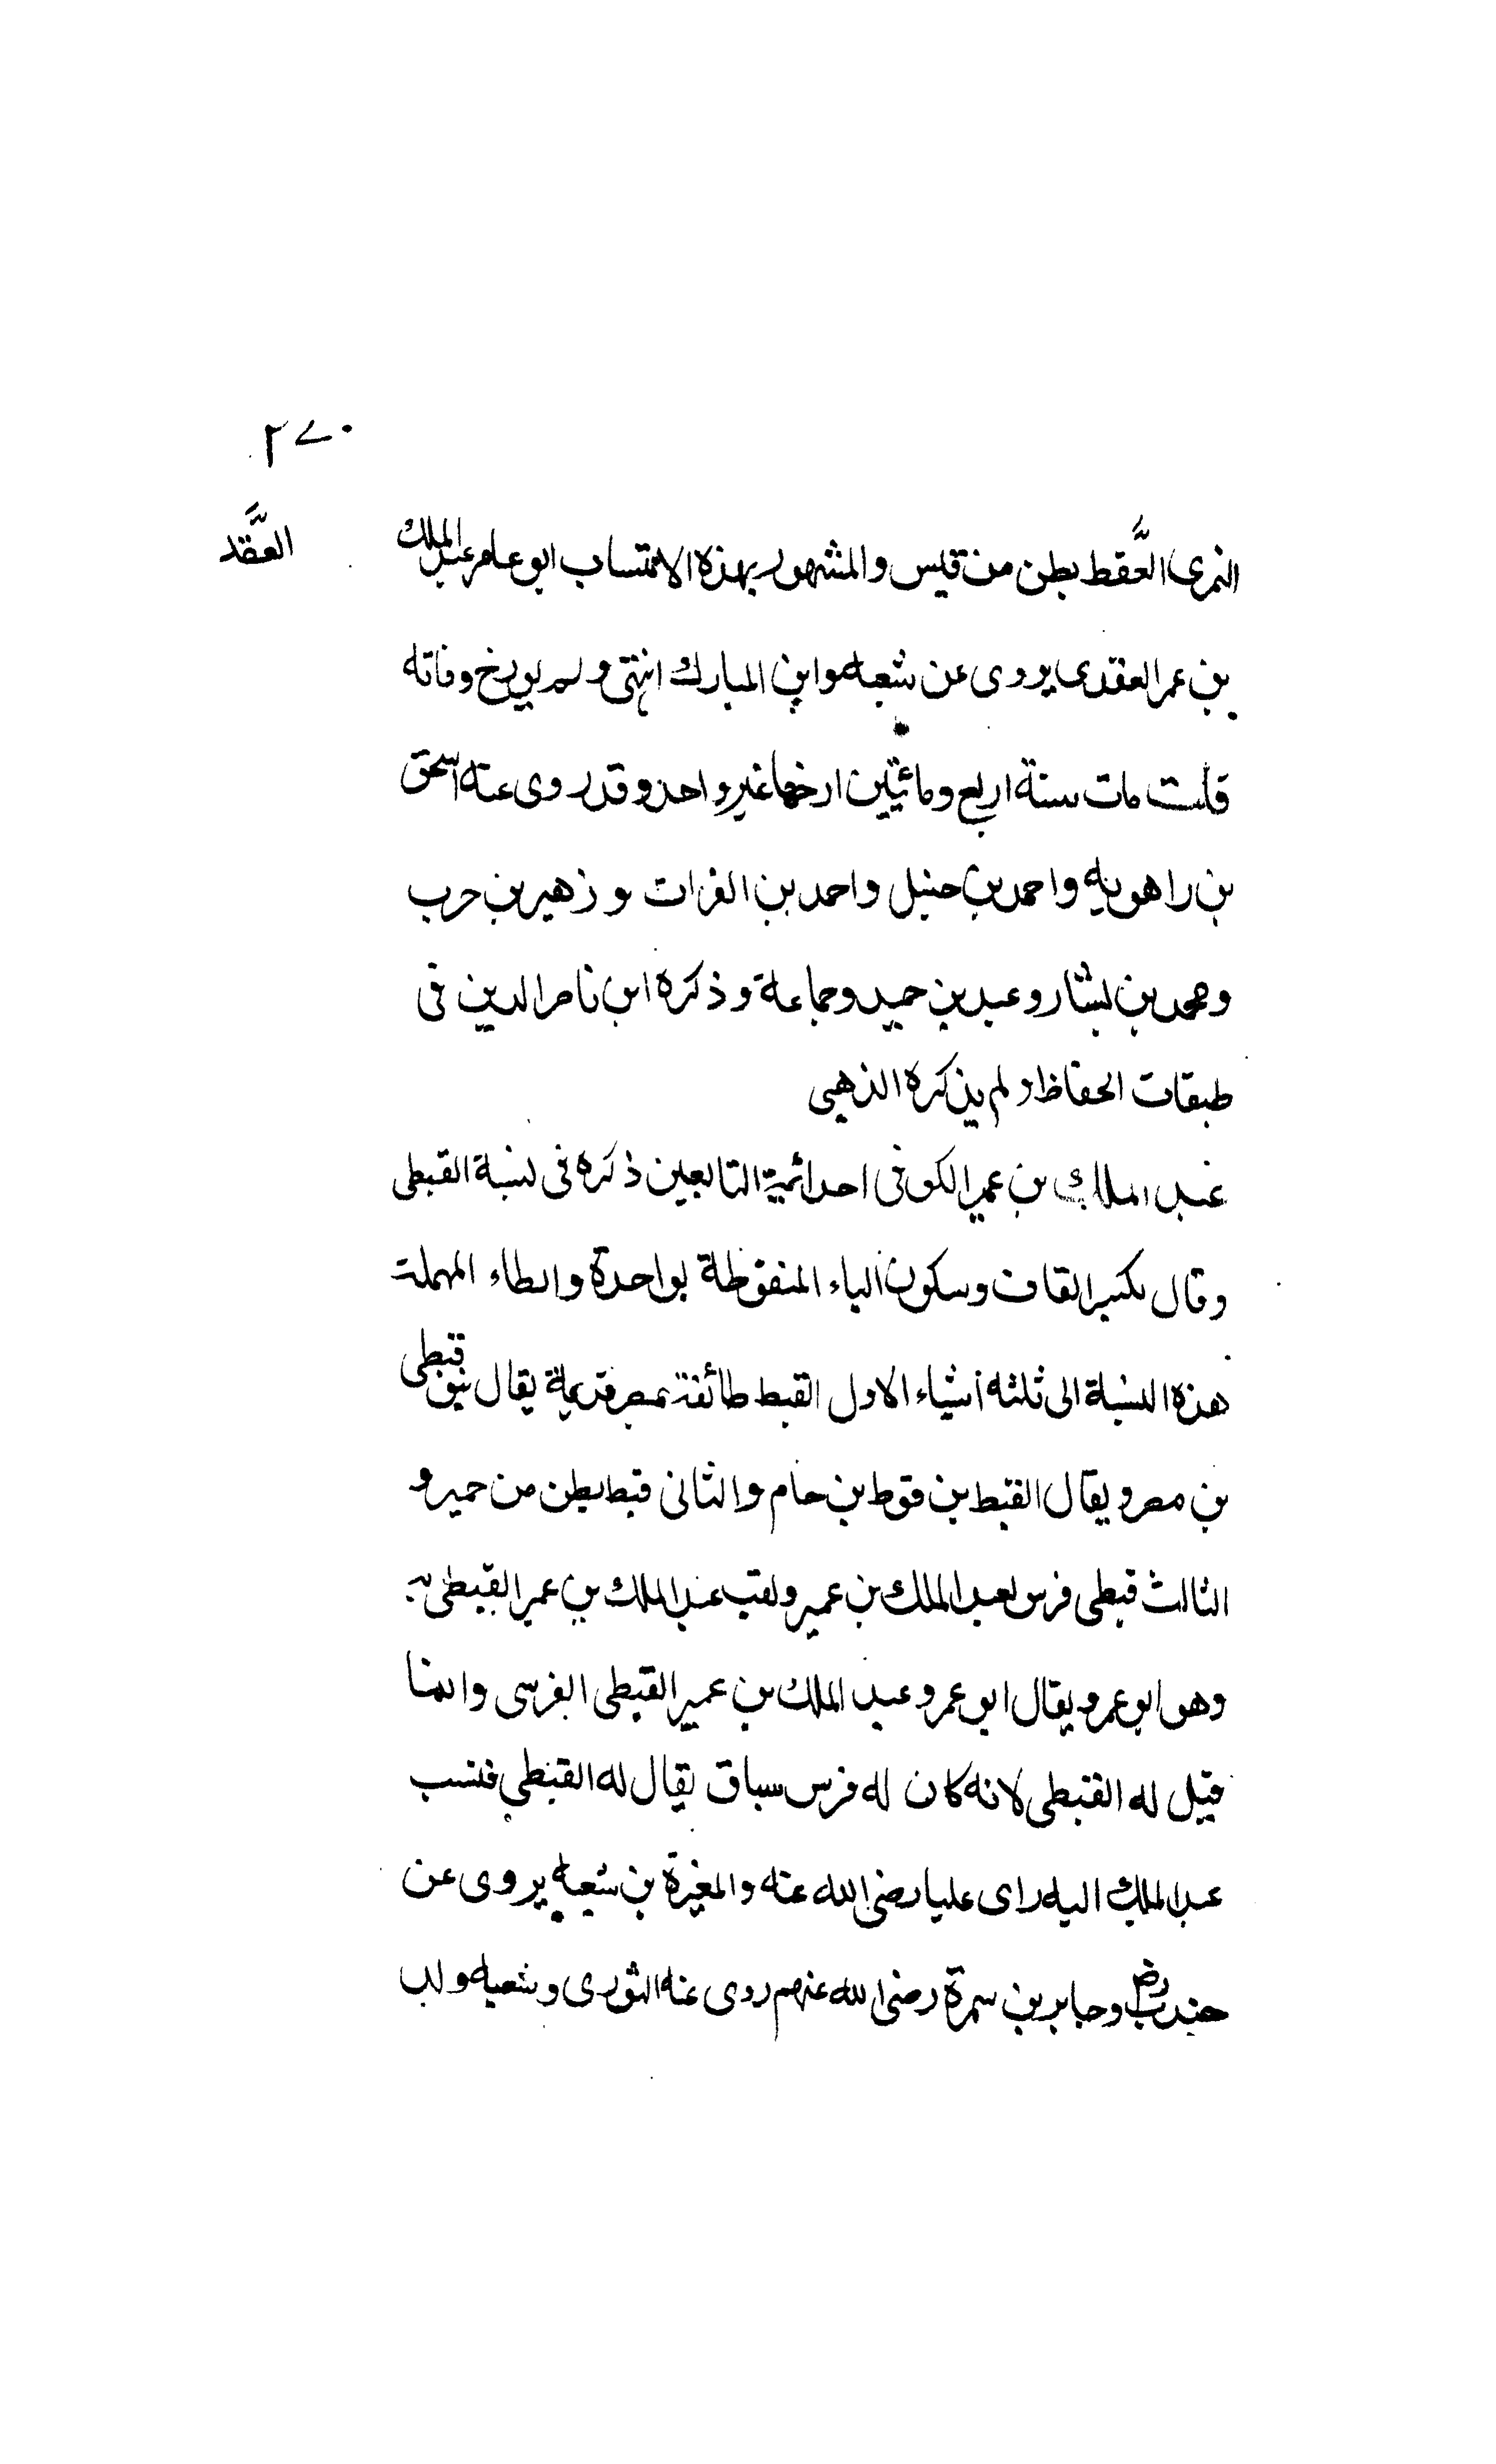 ٢٧٠
العقد
النمرى العقط بطن من قيس والمشهور بهذه الانتساب ابو عامر عبد الملك
بن عمر العقدى يروى عن شعبه وابن المبارك انتهى ولم يورخ وفاته
قلت مات سنة اربع ومائتين ارخها غير واحد وقد روى عنه اسحق
بن راهويه واحمد بن حنبل واحمد بن الفرات و زهير بن حرب
ومحمد بن بشار وعبد بن حميد وجماعة وذكره ابن ناصر الدين فى
طبقات الحفاظ ولم يذكره الذهبى
عبد الملك بن عمير الكوفى احد ائمية التابعين ذكره فى نسبة القبطى
وقال بكسر القاف وسكون الباء المنقوطة بواحدة والطاء المهملة
هذه النسبة الى ثلثه أشياء الاول القبط طائفة بمصر قديمة يقال بنو قبطى
بن مصر ويقال القبط بن قوط بن حام والثانى قبط بطن من حمير و
الثالث قبطى فرس لعبد الملك بن عمير ولقب عبد الملك بن عمير القبطى به
وهو ابو عمرو يقال ابو عمرو عبد الملك بن عمير القبطى الفرسى وانما
قيل له القبطى لانه كان له فرس سباق يقال له القبطى فنسب
عبد الملك اليه راى عليا رضى الله عنه والمغيرة بن شعبه يروى عن
جندب رض وجابر بن سمرة رضى الله عنهم روى عنه الثورى وشعبه ولد